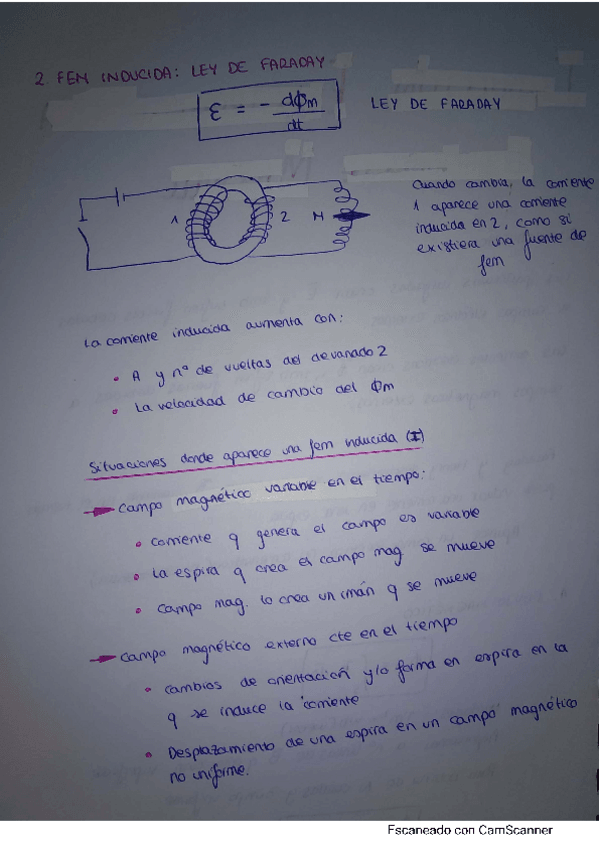 2 FEM INDUCIDA: LEY DE FARADAY
ε = - dΦm/dt
LEY DE FARADAY
1 2 M
Cuando cambia, la corriente
1 aparece una corriente
inducida en 2, como si
existiera una fuente de
fem
La corriente inducida aumenta con:
• A y nº de vueltas del devanado 2
• La velocidad de cambio del Φm
Situaciones donde aparece una fem inducida (I)
→ Campo magnético variable en el tiempo:
• corriente q genera el campo es variable
• La espira q crea el campo mag se mueve
• Campo mag. lo crea un imán q se mueve
→ Campo magnético externo cte en el tiempo
• cambios de orientación y/o forma en espira en la
q se induce la corriente
• Desplazamiento de una espira en un campo magnético
no uniforme.
Escaneado con CamScanner